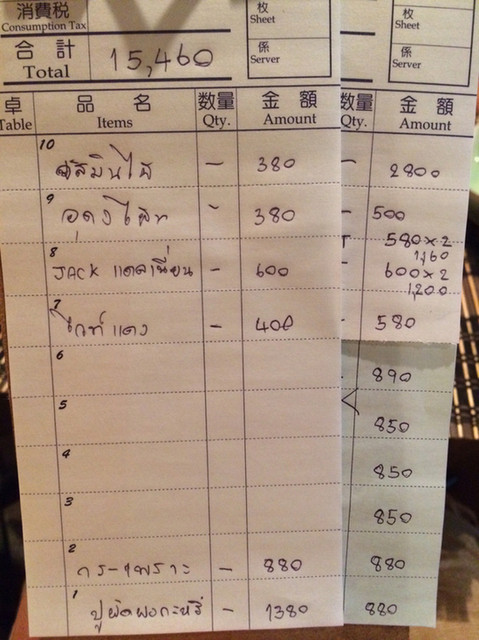 消費税 枚
Consumption Tax Sheet
合計 15,460 係
Total Server
枚
Sheet
係
Server
卓 品名 数量 金額
Table Items Qty. Amount
数量 金額
Qty. Amount
10 — 380
9 - 380
8 JACK แดลเนี่ยน - 600
7 ไวท์ แดง - 400
6
5
4
3
2 กระเพราะ - 880
1 ปูผัดผงกะหรี่ - 1380
- 2800
- 500
580 × 2
1,160
- 600 × 2
1,200
- 580
- 890
850
850
850
880
880